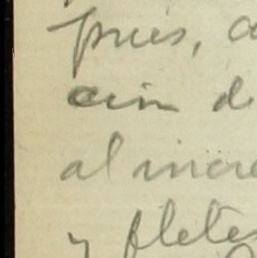 pues, a
ción de
al incre
y fletes